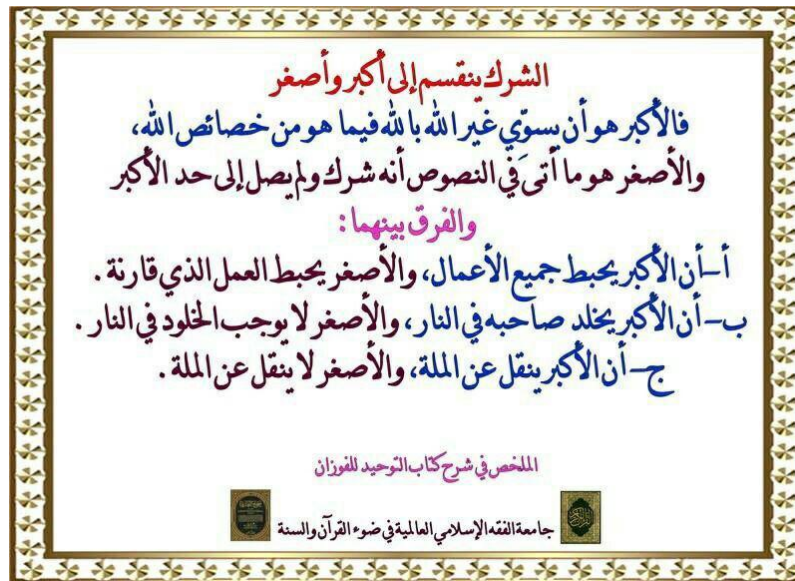 الشرك ينقسم إلى أكبر وأصغر
فالأكبر هو أن يسوّي غير الله بالله فيما هو من خصائص الله،
والأصغر هو ما أتىَ في النصوص أنه شرك ولم يصل إلى حد الأكبر
والفرق بينهما :
أ-أن الأكبر يحبط جميع الأعمال، والأصغر يحبط العمل الذي قارنة .
ب-أن الأكبر يخلد صاحبه في النار، والأصغر لا يوجب الخلود في النار .
ج-أن الأكبر ينقل عن الملة، والأصغر لا ينقل عن الملة .
الملخص في شرح كتاب التوحيد للفوزان
جامعة الفقه الإسلامي العالمية في ضوء القرآن والسنة